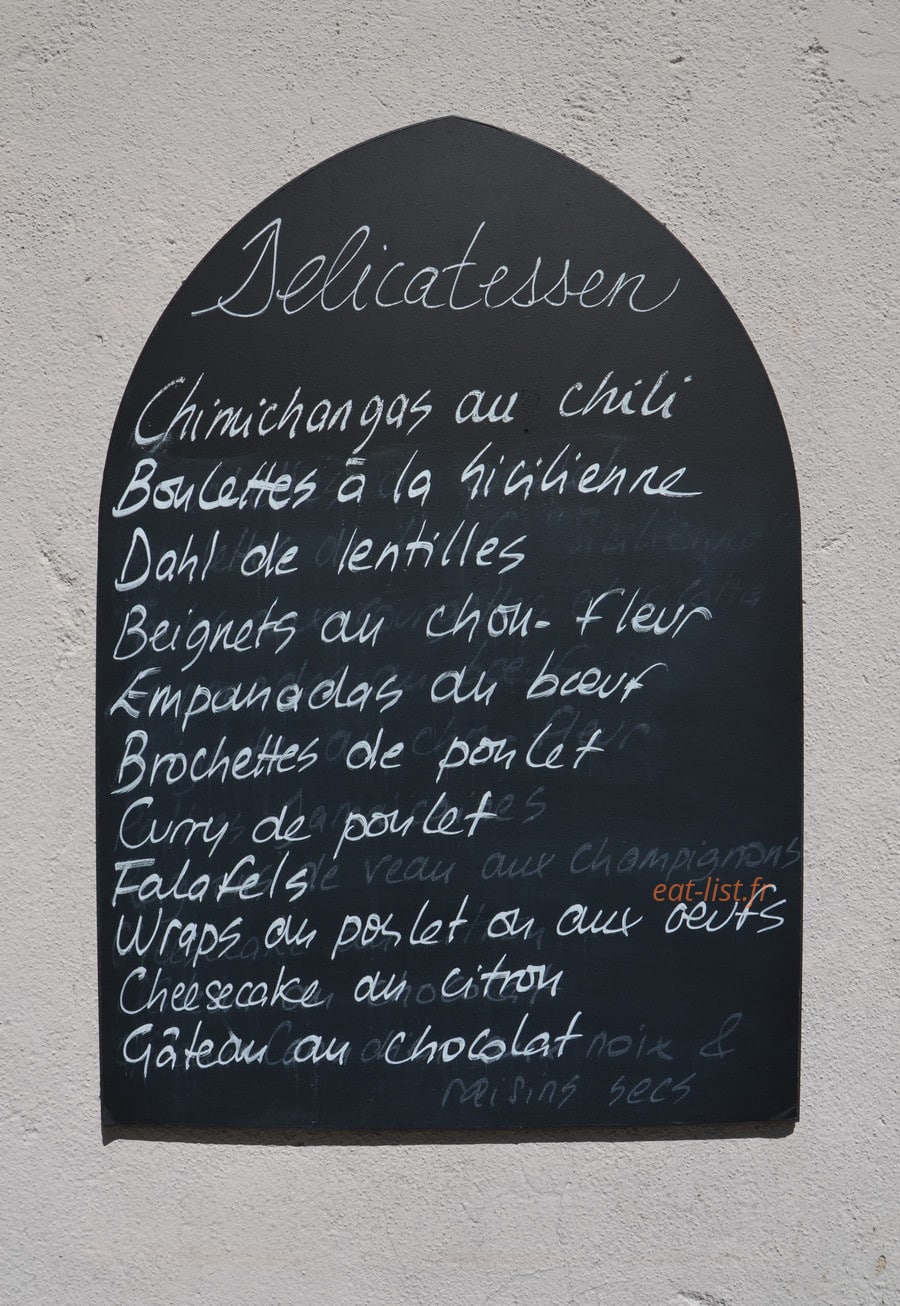 Delicatessen
Chimichangas au chili
Boulettes à la Sicilienne
Dahl de lentilles
Beignets au chou-fleur
Empanadas au bœuf
Brochettes de poulet
Curry de poulet
de veau aux champignons
Falafels
eat-list.fr
Wraps au poulet ou aux oeufs
Cheesecake au citron
Gâteau au chocolat
noix &
raisins secs